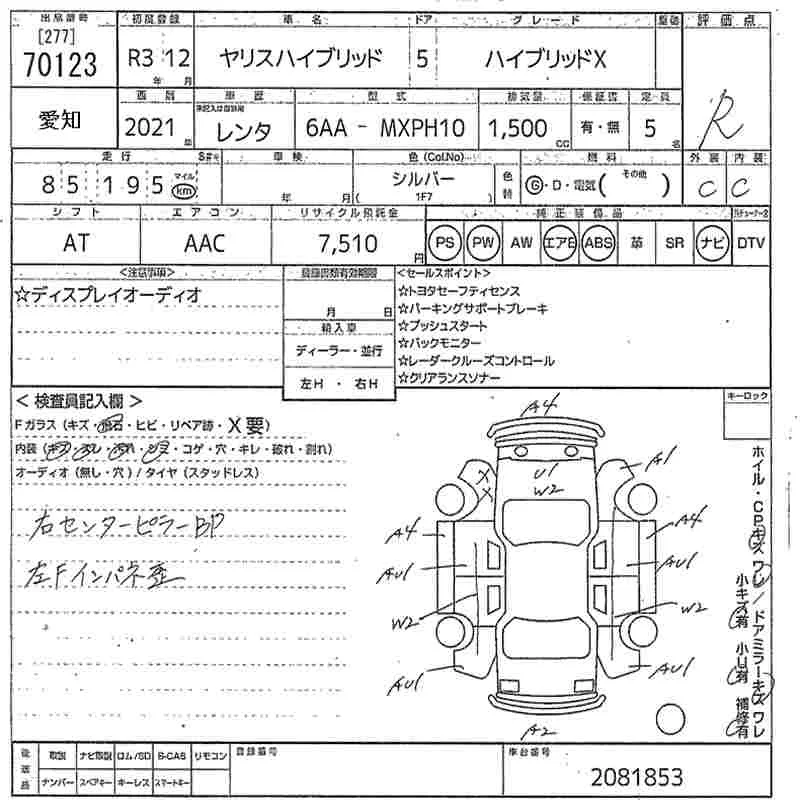 出品番号 初度登録 車名 ドア グレード 整備 評価点
[277]
70123 R3 12 ヤリスハイブリッド 5 ハイブリッドX
年 月
愛知 西暦 車歴 型式 排気量 保証書 定員 R
未記入は自家用
2021 年 レンタ 6AA - MXPH10 1,500 CC 有・無 5 名
走行 S#キ 車検 色(Col.No) 燃料 外装 内装
85,195 マイル km 年 月 シルバー 色替 G・D・電気( その他 ) C C
( 1F7 )
シフト エアコン リサイクル預託金 純正装備品
AT AAC 7,510 円 PS PW AW エアB ABS 革 SR ナビ DTV
<注意事項> 登録書類有効期限 <セールスポイント>
☆ディスプレイオーディオ
月 日
輸入車
ディーラー・並行
左H ・ 右H
☆トヨタセーフティセンス
☆パーキングサポートブレーキ
☆プッシュスタート
☆バックモニター
☆レーダークルーズコントロール
☆クリアランスソナー
<検査員記入欄>
Fガラス (キズ・飛石・ヒビ・リペア跡・X要)
内装 (キズ・スレ・汚れ・シミ・コゲ・穴・キレ・破れ・割れ)
オーディオ (無し・穴) / タイヤ (スタッドレス)
右センターピラーBP
左Fインパネ歪
キーロック
A4
U1
W2
A1
A4
A4
AU1
AU1
W2
W2
AU1
AU1
A2
ホイル・CP キズ ワレ / ドアミラーキズ ワレ
小キズ有 小U有 補修有
後送品 取説 ナビ取説 ロム/SD B-CAS リモコン 登録番号 車台番号
ナンバー スペアキー キーレス スマートキー
2081853